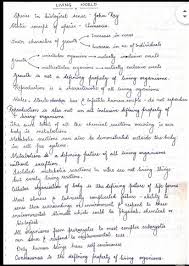 LIVING WORLD
Species in biological sense - John Ray
Static concept of species - Linnaeus
Two characters of growth
Increase in mass
Increase in no. of individuals
Growth
unicellular organisms →
multicellular organisms →
Growth is not a defining property of living organisms.
Reproduction is a characteristic of all living organisms.
Mules, sterile worker bees & infertile human couple do not reproduce
Reproduction is also not an all inclusive defining property of
living organisms.
The sum total of all the chemical reactions occurring in our
body is metabolism.
Metabolic reactions can also be demonstrated outside the body
in cell free systems.
Metabolism is a defining feature of all living organisms
without exception.
Isolated metabolic reactions in vitro are not living things
but surely living reactions.
Cellular organisation of body is the defining feature of life forms
Most obvious & technically complicated feature - ability to
sense their surroundings or environment & respond to these
environmental stimuli which could be physical, chemical or
biological.
All organisms from prokaryotes to most complex eukaryotes
can sense & respond to environmental cues
Only human beings have self consciousness
Consciousness is the defining property of living organisms.